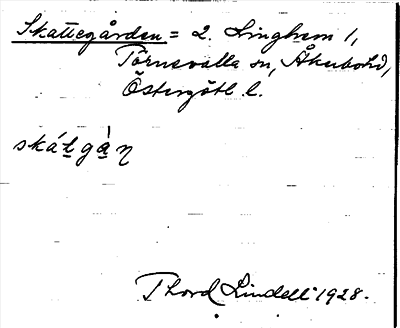 Skattegården = 2. Linghem 1,
Törnevalla sn, Åkerbo hd,
Östergötl. l.
skátgàṇ
Thord Lindell 1928.